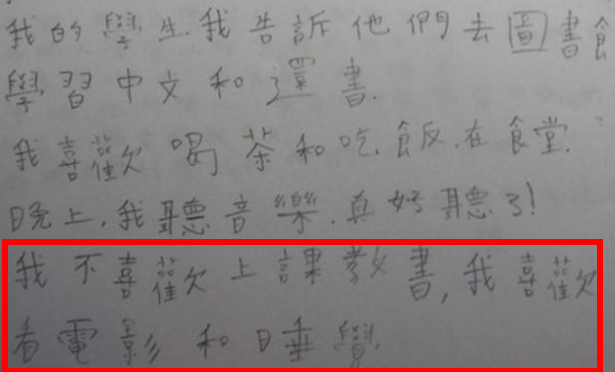 我的學生.我告訴他們去圖書館
學習中文和還書.
我喜歡喝茶和吃飯.在食堂.
晚上,我聽音樂.真好聽了!
我不喜歡上課教書,我喜歡
看電影和睡覺